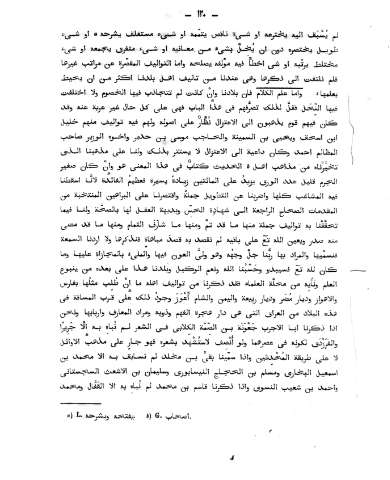 — ١٢٠ —
لم يُسْبَق اليه يخترعه او شىء ناقص يتمّمه او شىء مستغلف يشرحه او شىء
طويل يختصره دون ان يُخلّ بشىء من معانيه او شىء متفرق يجمعه او شىء
مختلط يرتّبه او شىء اخطأ فيه مؤلفه يصلحه واما التواليف المقصّرة عن مراتب غيرها
فلم نلتفت الى ذكرها وهى عندنا من تاليف اهل بلدنا اكثر من ان نحيط
بعلمها، واما علم الكلام فان بلادنا وان كانت لم تتجاذب فيها الخصوم ولا اختلفت
فيها النِحَل فقلّ لذلك تصرّفهم فى هذا الباب فهى على كل حال غير عرية عنه وقد
كان فيهم قوم يذهبون الى الاعتزال نُظّار على اصوله ولهم فيه تواليف منهم خليل
ابن اسحاق ويحيى بن السمينة والحاجب موسى بن حدير واخوه الوزير صاحب
المظالم احمد وكان داعية الى الاعتزال لا يستتر بذلك ولنا على مذهبنا الذى
تخيّرناه من مذاهب اهل الحديث كتاب فى هذا المعنى وهو وان كان صغير
الجرم قليل عدد الورق يزيد على المائتين زيادة يسيرة فعظيم الفائدة لانّا اسقطنا
فيه المشاغب كلها واضربنا عن التطويل جملة واقتصرنا على البراهين المنتخبة من
المقدمات الصحاح الراجعة الى شهادة الحسّ وبديهة العقل لها بالصحّة ولنا فيما
تحقّقنا به تواليف جملة منها ما قد تمّ ومنها ما شارف التمام ومنها ما قد مضى
منه صدر ويعين الله تع على باقيه لم نقصد به قصد مباهاة فنذكرها ولا اردنا السمعة
فنسمّيها والمراد بها ربّنا جلّ وجهه وهو ولىّ العون فيها والملىء بالمجازاة عليها وما
كان لله تع فسيبدو وحَسْبُنا الله ونعم الوكيل وبلدنا هذا على بعده من ينبوع
العلم ونأيه من محلّة العلماء فقد ذكرنا من تواليف اهله ما انْ طُلب مثلُها بفارس
والاهواز وديار مُضَر وديار ربيعة واليمن والشام أعْوَزَ وجودُ ذلك على قرب المسافة فى
هذه البلاد من العراق التى هى دار هجرة الفهم وذويه ومراد المعارف واربابها ونحن
اذا ذكرنا ابا الاجرب جَعْوَنَة بن الصمّة الكلابى فى الشعر لم نُباه به الّا جَرِيرًا
والفَرَزْدَق لكونه فى عصرهما ولو أُنصف لاستُشهد بشعره فهو جارٍ على مذهب الاوائل
لا على طريقة المُحْدَثين واذا سمّينا بقىّ بن مخلد لم نسابق به الا محمد بن
اسمعيل البخارى ومسلم بن الحجّاج النيسابورى وسليمان بن الاشعث السجستانى
واحمد بن شعيب النسوى واذا ذكرنا قاسم بن محمد لم نُباه به الا القفّال ومحمد
a) L. يفتتاحه وبشرحه. b) G. اصحاب.